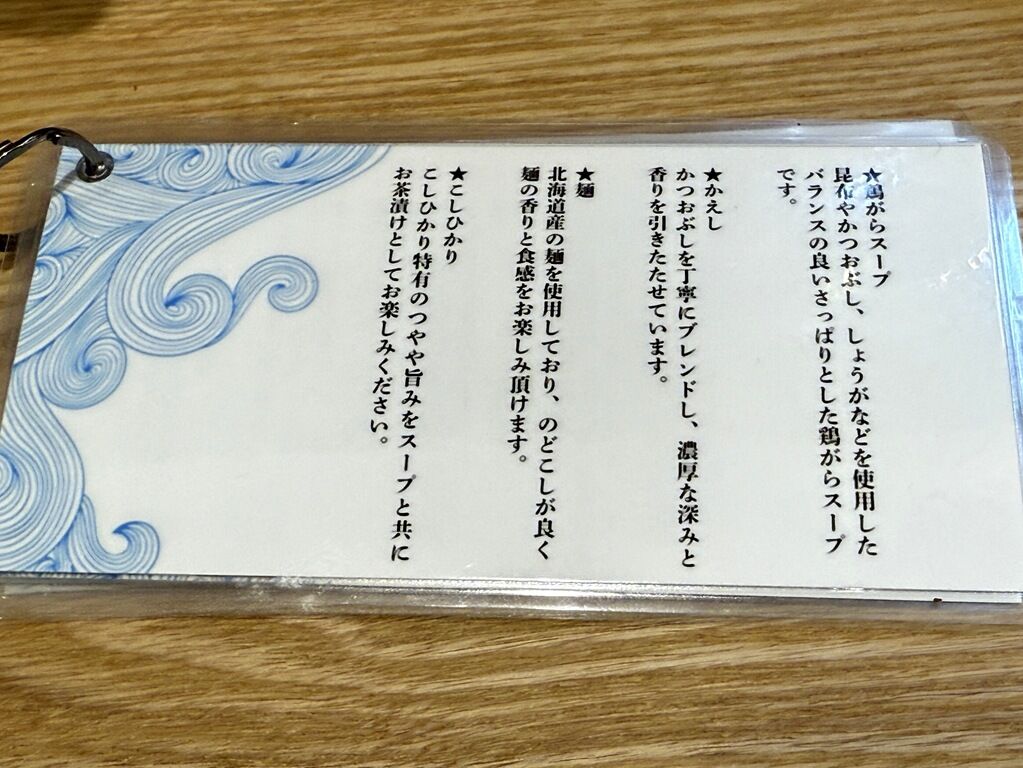 ★鶏がらスープ
昆布やかつおぶし、しょうがなどを使用した
バランスの良いさっぱりとした鶏がらスープ
です。
★かえし
かつおぶしを丁寧にブレンドし、濃厚な深みと
香りを引きたたせています。
★麺
北海道産の麺を使用しており、のどこしが良く
麺の香りと食感をお楽しみ頂けます。
★こしひかり
こしひかり特有のつやや旨みをスープと共に
お茶漬けとしてお楽しみください。